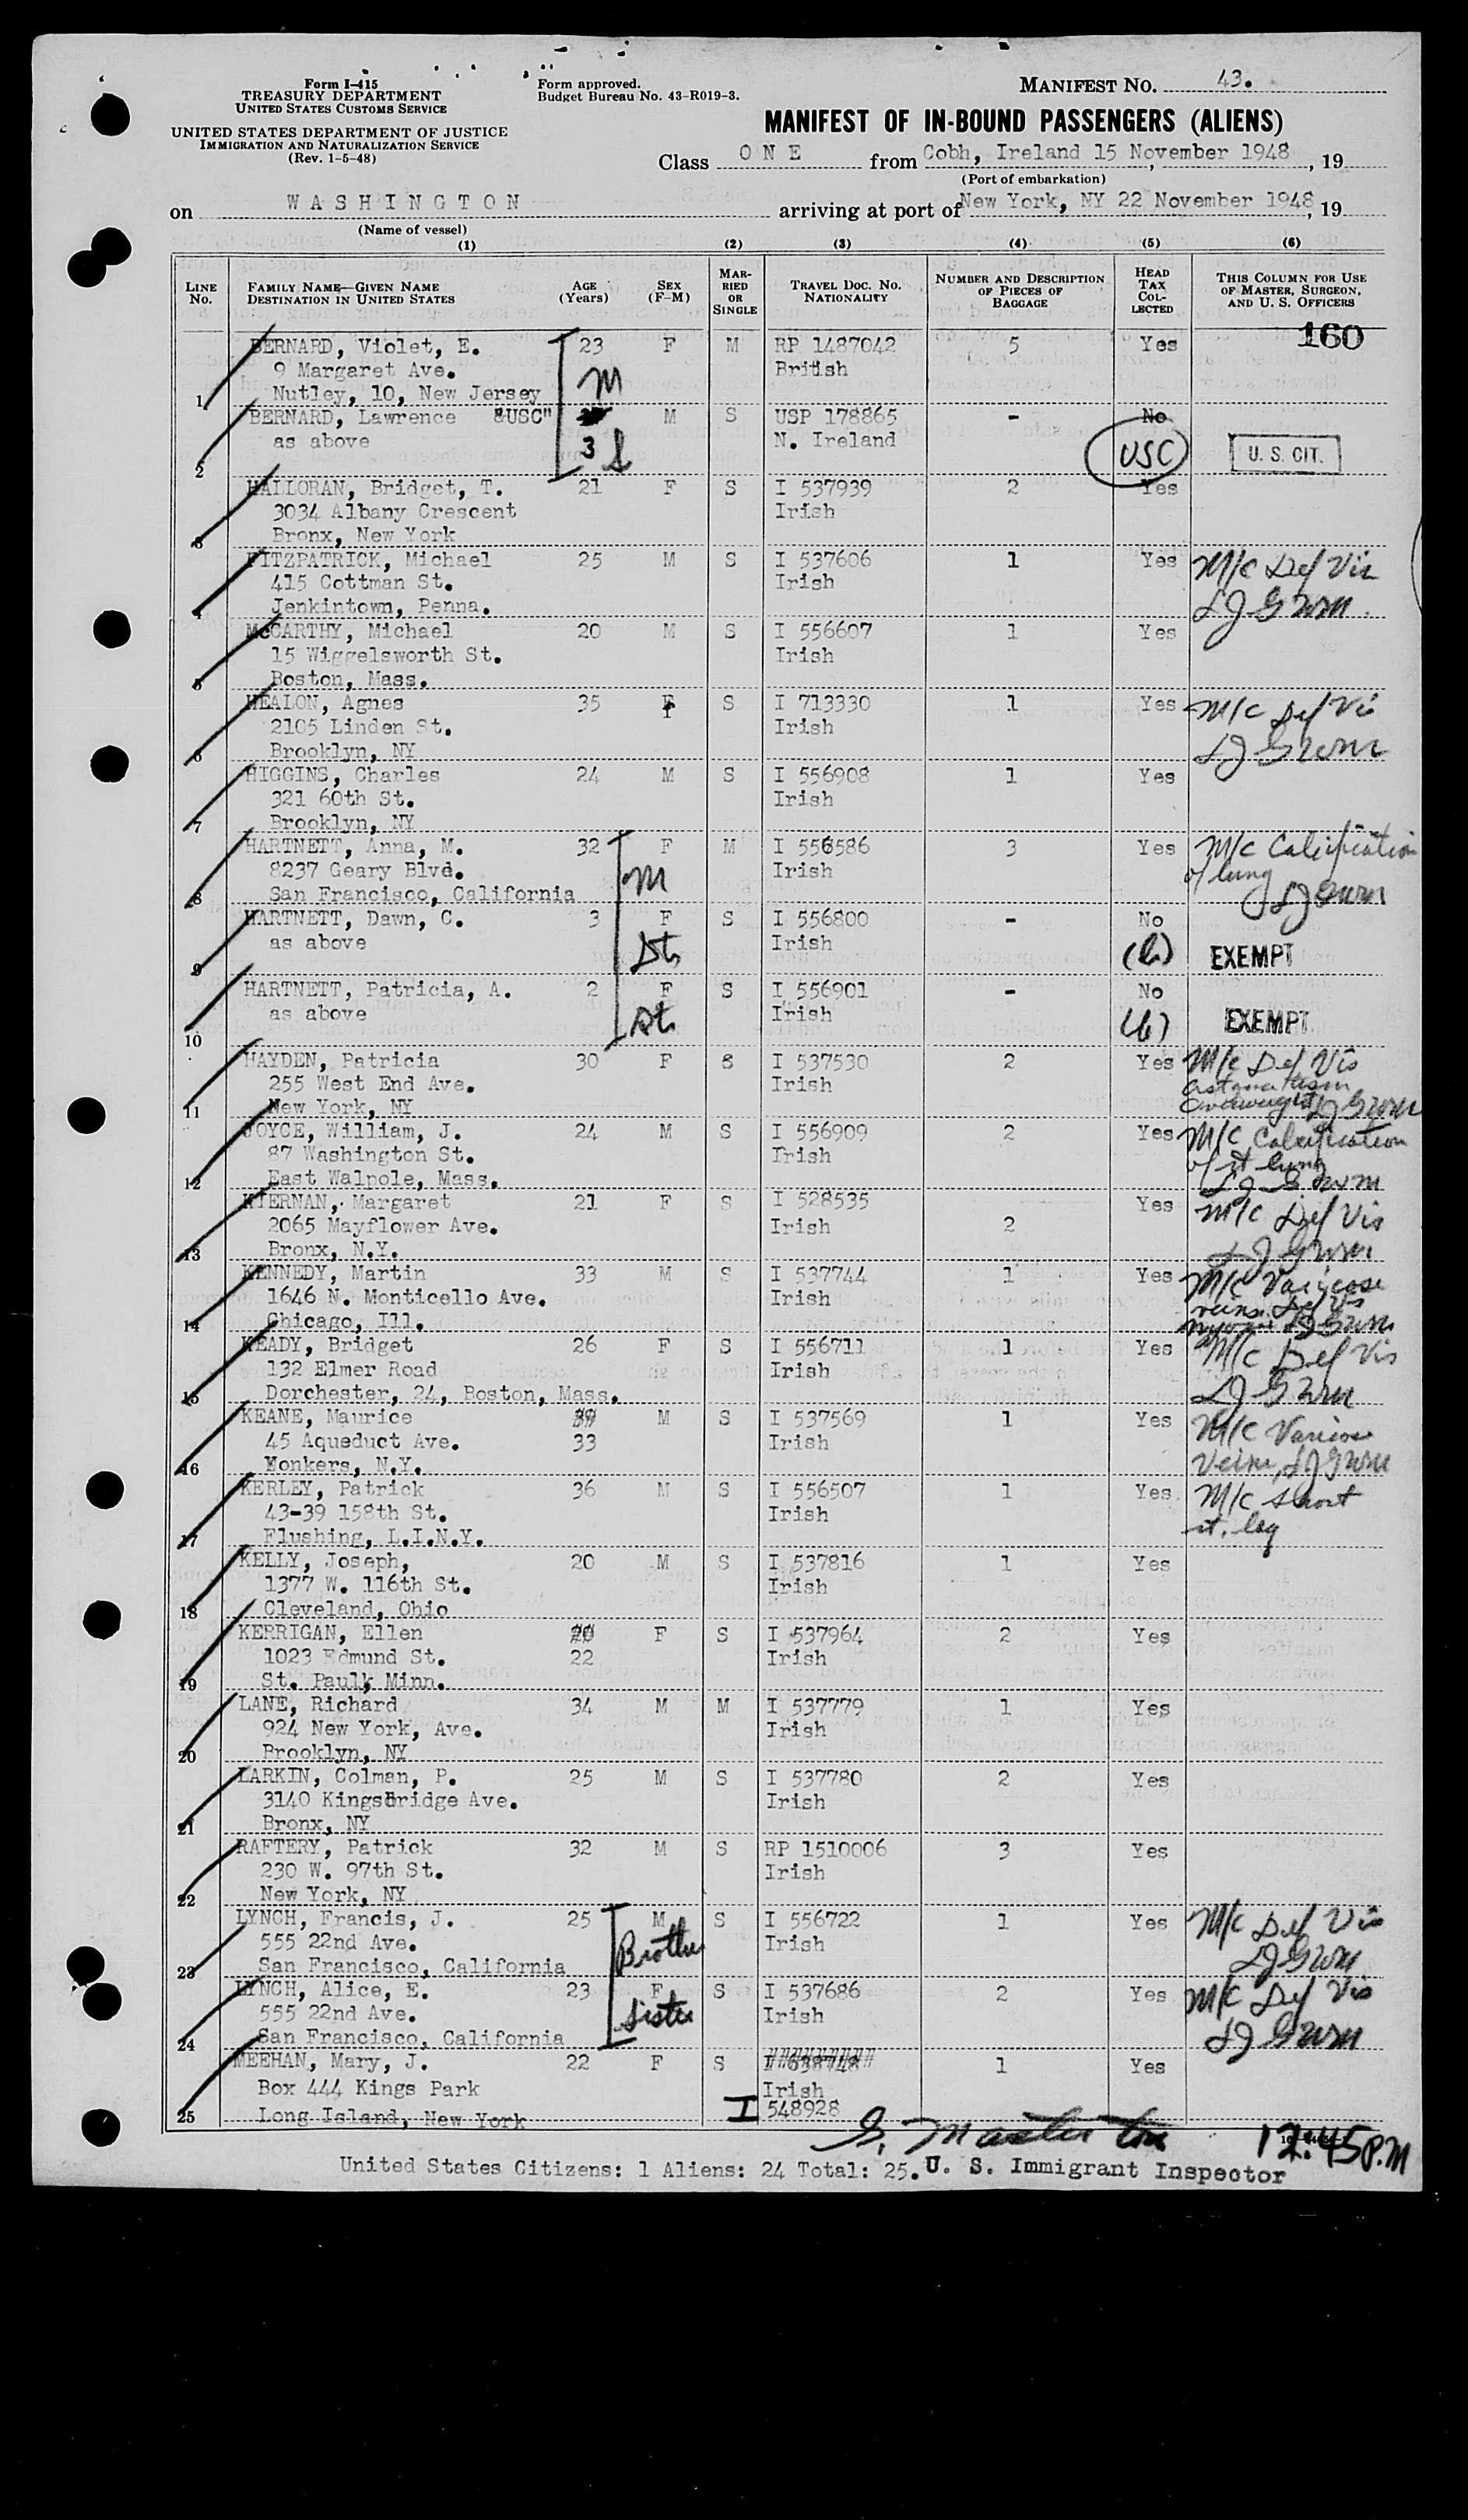 Form I-415
TREASURY DEPARTMENT
UNITED STATES CUSTOMS SERVICE
UNITED STATES DEPARTMENT OF JUSTICE
IMMIGRATION AND NATURALIZATION SERVICE
(Rev. 1-5-48)
Form approved.
Budget Bureau No. 43-R019-3.
MANIFEST NO. 43.
MANIFEST OF IN-BOUND PASSENGERS (ALIENS)
Class ONE from Cobh, Ireland 15 November 1948, 19
(Port of embarkation)
on WASHINGTON arriving at port of New York, NY 22 November 1948, 19
(Name of vessel)
(1) (2) (3) (4) (5) (6)
LINE No. FAMILY NAME—GIVEN NAME DESTINATION IN UNITED STATES AGE (Years) SEX (F-M) MARRIED OR SINGLE TRAVEL DOC. NO. NATIONALITY NUMBER AND DESCRIPTION OF PIECES OF BAGGAGE HEAD TAX COLLECTED THIS COLUMN FOR USE OF MASTER, SURGEON, AND U. S. OFFICERS
160
BERNARD, Violet, E. 23 F M RP 1487042 5 Yes
9 Margaret Ave. M British
1 Nutley, 10, New Jersey
BERNARD, Lawrence "USC" M S USP 178865 - No
as above 3 S N. Ireland USC U. S. CIT.
2
HALLORAN, Bridget, T. 21 F S I 537939 2 Yes
3034 Albany Crescent Irish
3 Bronx, New York
FITZPATRICK, Michael 25 M S I 537606 1 Yes M/C Def Vis
415 Cottman St. Irish
4 Jenkintown, Penna.
McCARTHY, Michael 20 M S I 556607 1 Yes
15 Wiggelsworth St. Irish
5 Boston, Mass.
HEALON, Agnes 35 F S I 713330 1 Yes M/C Def Vis
2105 Linden St. Irish
6 Brooklyn, NY
HIGGINS, Charles 24 M S I 556908 1 Yes
321 60th St. Irish
7 Brooklyn, NY
HARTNETT, Anna, M. 32 F M I 556586 3 Yes M/C Calcification
8237 Geary Blvd. M Irish of lung
8 San Francisco, California
HARTNETT, Dawn, C. 3 F S I 556800 - No
as above Dt Irish (b) EXEMPT
9
HARTNETT, Patricia, A. 2 F S I 556901 - No
as above Dt Irish (b) EXEMPT
10
HAYDEN, Patricia 30 F S I 537530 2 Yes M/C Def Vis
255 West End Ave. Irish astigmatism
11 New York, NY overweight
JOYCE, William, J. 24 M S I 556909 2 Yes M/C Calcification
87 Washington St. Irish of rt lung
12 East Walpole, Mass.
KIERNAN, Margaret 21 F S I 528535 Yes M/C Def Vis
2065 Mayflower Ave. Irish 2
13 Bronx, N.Y.
KENNEDY, Martin 33 M S I 537744 1 Yes M/C Varicose
1646 N. Monticello Ave. Irish veins. Def Vis
14 Chicago, Ill.
KEADY, Bridget 26 F S I 556711 1 Yes M/C Def Vis
132 Elmer Road Irish
15 Dorchester, 24, Boston, Mass.
KEANE, Maurice M S I 537569 1 Yes M/C Varicose
45 Aqueduct Ave. 33 Irish Veins
16 Yonkers, N.Y.
KERLEY, Patrick 36 M S I 556507 1 Yes. M/C short
43-39 158th St. Irish rt. leg
17 Flushing, L.I.N.Y.
KELLY, Joseph, 20 M S I 537816 1 Yes
1377 W. 116th St. Irish
18 Cleveland, Ohio
KERRIGAN, Ellen 20 F S I 537964 2 Yes
1023 Edmund St. 22 Irish
19 St. Paul, Minn.
LANE, Richard 34 M M I 537779 1 Yes
924 New York, Ave. Irish
20 Brooklyn, NY
LARKIN, Colman, P. 25 M S I 537780 2 Yes
3140 Kingsbridge Ave. Irish
21 Bronx, NY
RAFTERY, Patrick 32 M S RP 1510006 3 Yes
230 W. 97th St. Irish
22 New York, NY
LYNCH, Francis, J. 25 M S I 556722 1 Yes M/C Def Vis
555 22nd Ave. Brother Irish
23 San Francisco, California
LYNCH, Alice, E. 23 F S I 537686 2 Yes M/C Def Vis
555 22nd Ave. Sister Irish
24 San Francisco, California
MEEHAN, Mary, J. 22 F S I 638748 1 Yes
Box 444 Kings Park Irish
25 Long Island, New York I 548928
G. Masterton 12:45 P.M
United States Citizens: 1 Aliens: 24 Total: 25. U. S. Immigrant Inspector